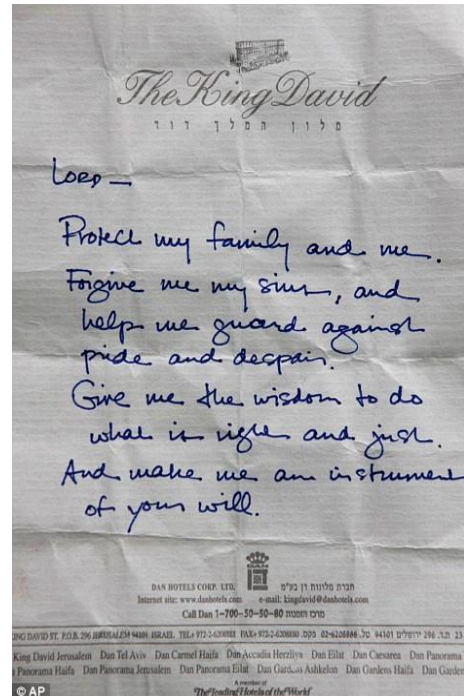 The King David
מלון המלך דוד
LORD —
Protect my family and me.
Forgive me my sins, and
help me guard against
pride and despair.
Give me the wisdom to do
what is right and just.
And make me an instrument
of your will.
DAN HOTELS CORP. LTD. חברת מלונות דן בע"מ
Internet site: www.danhotels.com e-mail: kingdavid@danhotels.com
Call Dan 1-700-50-50-80 מרכז הזמנות
KING DAVID ST. P.O.B. 296 JERUSALEM 94101 ISRAEL. TEL. 972-2-6208888 FAX.
King David Jerusalem Dan Tel Aviv Dan Carmel Haifa Dan Accadia Herzliya Dan Eilat Dan Caesarea Dan Panorama
Panorama Haifa Dan Panorama Jerusalem Dan Panorama Eilat Dan Gardens Ashkelon Dan Gardens Haifa Dan Garden
A member of
"The Leading Hotels of the World"
© AP